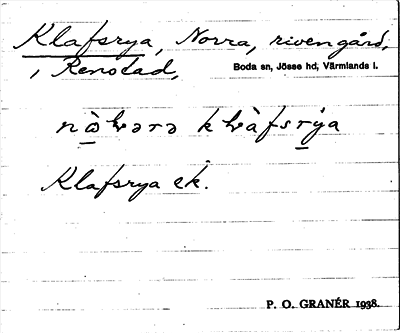 Klafsrya, Norra, riven gård,
i Renstad,
Boda sn, Jösse hd, Värmlands l.
Klafsrya ek.
P. O. GRANÉR 1938.